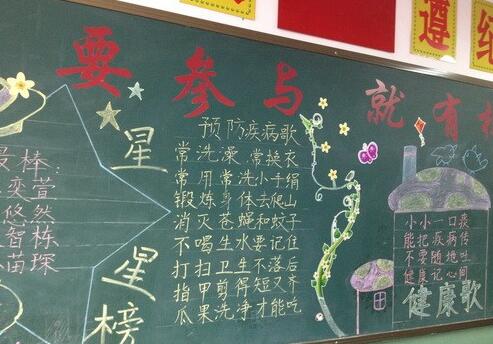 遵纪
要参与就有
星星榜
最棒：
奕萱
悠然
智栋
苗琛
预防疾病歌
常洗澡 常换衣
常用常洗小手绢
锻炼身体去爬山
消灭苍蝇和蚊子
不喝生水要记住
打扫卫生不落后
指甲剪得短又齐
瓜果洗净才能吃
小小一口痰
能把疾病传
不要随地吐
健康记心间
健康歌